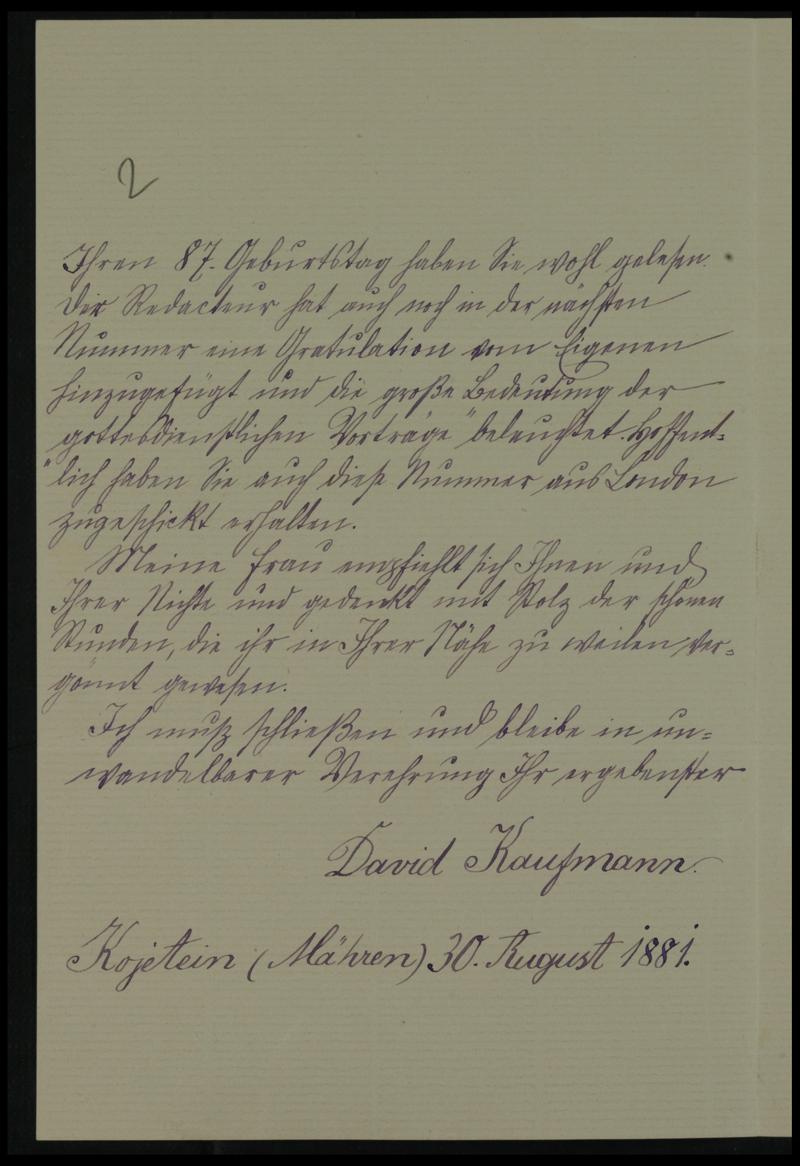 2
Ihren 87. Geburtstag haben Sie wohl gelesen.
Der Redacteur hat auch noch in der nächsten
Nummer eine Gratulation vom Eigenen
hinzugefügt und die große Bedeutung der
gottesdienstlichen Vorträge" beleuchtet. Hoffent-
"lich haben Sie auch diese Nummer aus London
zugeschickt erhalten.
Meine Frau empfiehlt sich Ihnen und
Ihrer Nichte und gedenkt mit Stolz der schönen
Stunden, die ihr in Ihrer Nähe zu weilen ver-
gönnt gewesen.
Ich muß schließen und bleibe in un-
wandelbarer Verehrung Ihr ergebenster
David Kaufmann.
Kojetein (Mähren) 30. August 1881.